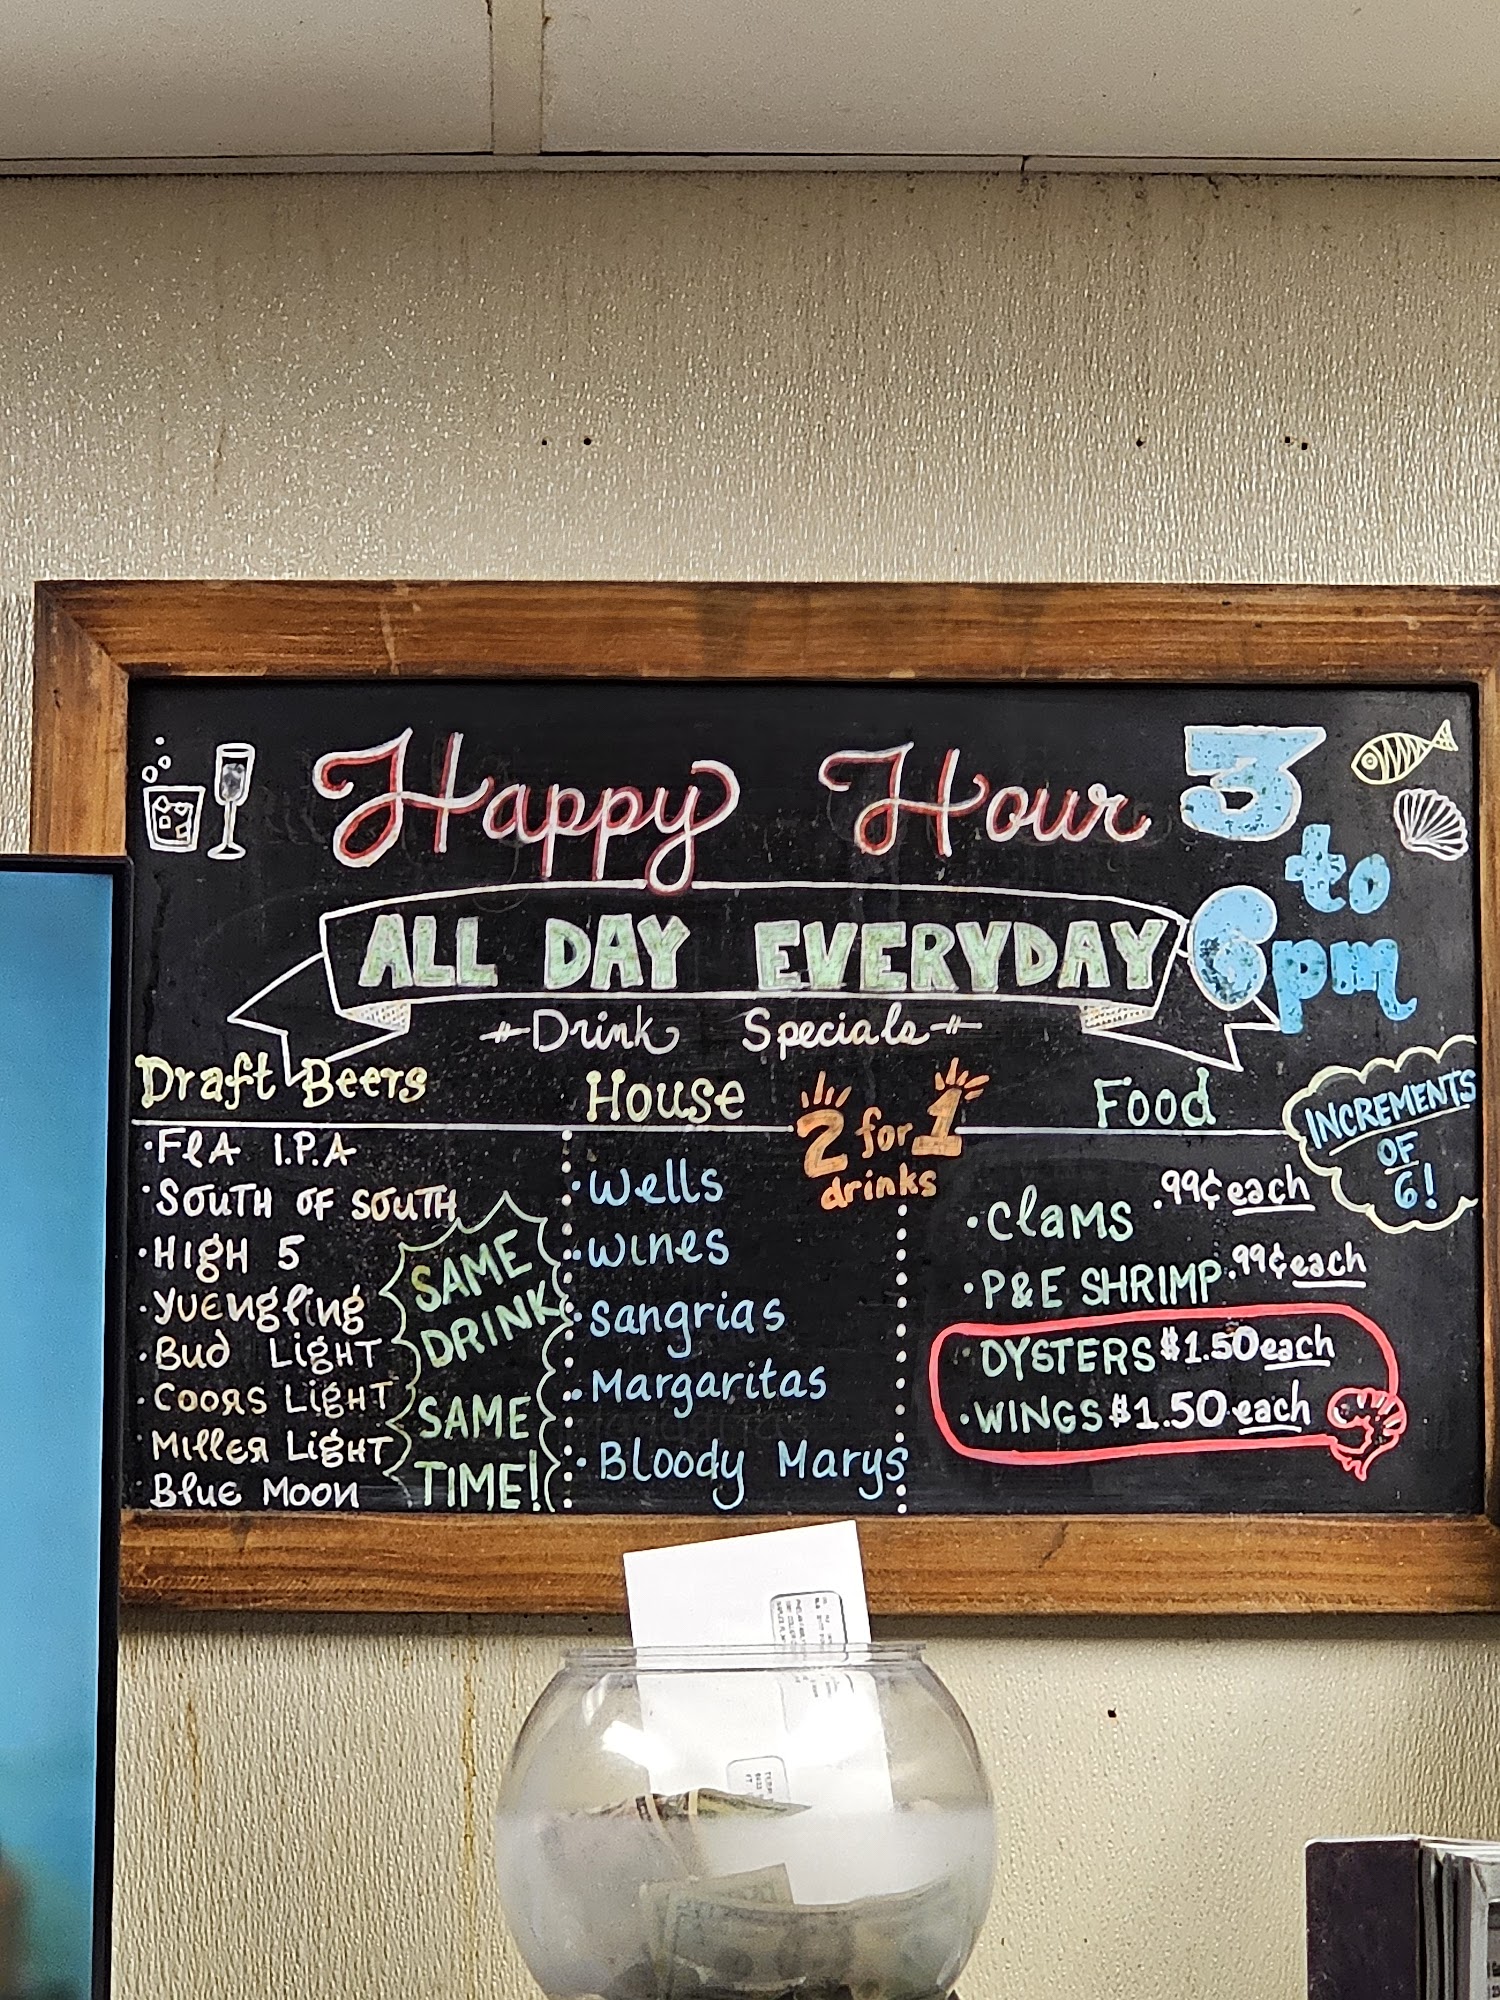 Happy Hour 3
to
6pm
ALL DAY EVERYDAY
Drink Specials
Draft Beers
· FLA I.P.A
· SOUTH OF SOUTH
· HIGH 5
· Yuengling
· Bud Light
· Coors Light
· Miller Light
· Blue Moon
SAME
DRINK
SAME
TIME!
House
2 for 1
drinks
· Wells
· Wines
· Sangrias
· Margaritas
· Bloody Marys
Food
INCREMENTS
OF
6!
· Clams .99¢ each
· P&E SHRIMP .99¢ each
· OYSTERS $1.50 each
· WINGS $1.50 each